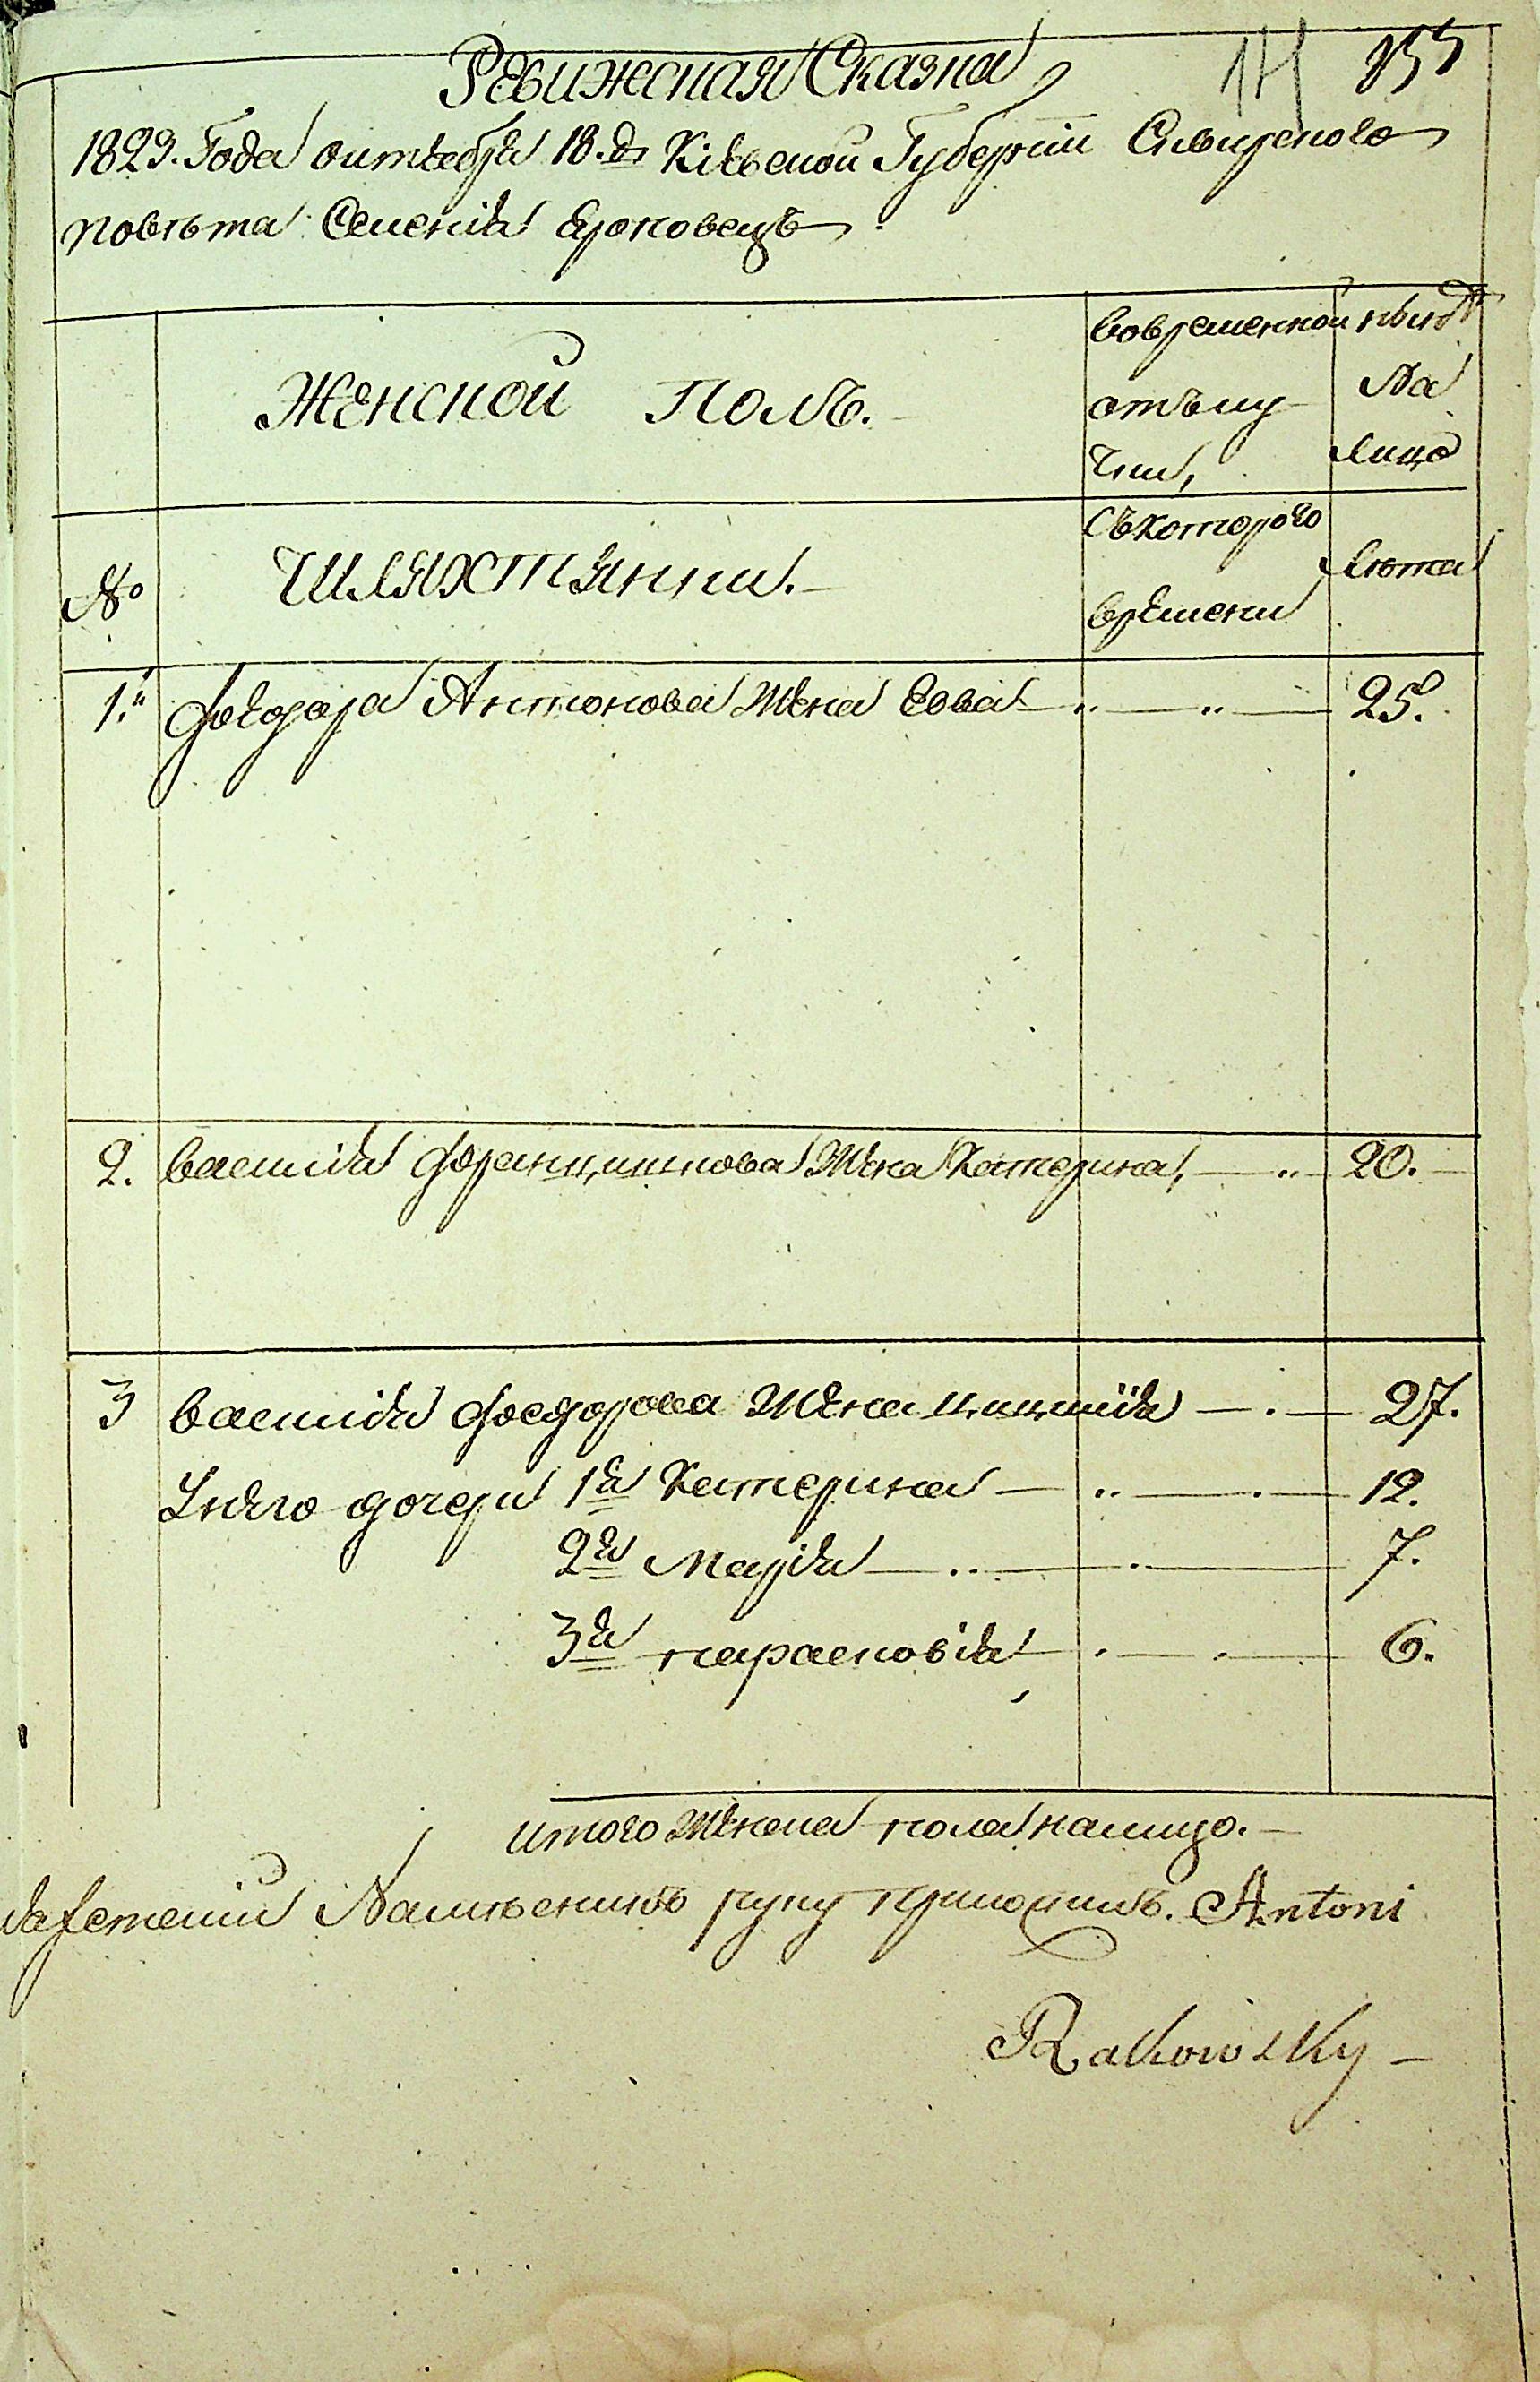 Ревижская Сказка
1823. Года октебря 18. д. Кіевской Губерніи Сквирского
повѣта Селенія Ерковецъ
Женской Полъ.
вовременной
отълу
чки,
нынѣ
На
Лицо
№
Шляхтянки.
Съкоторого
времени
Лѣта
1. Феодора Антонова Жена Еова 25.
2. василія Францишкова Жена Катерина, 20.
3 василія Феодорова Жена Цицилія 27.
Унего дочери 1я Катерина 12.
2я Марія 7.
3я парасковія 6.
итого Женска пола налицо.
руку приложилъ. Antoni
Rakowsky